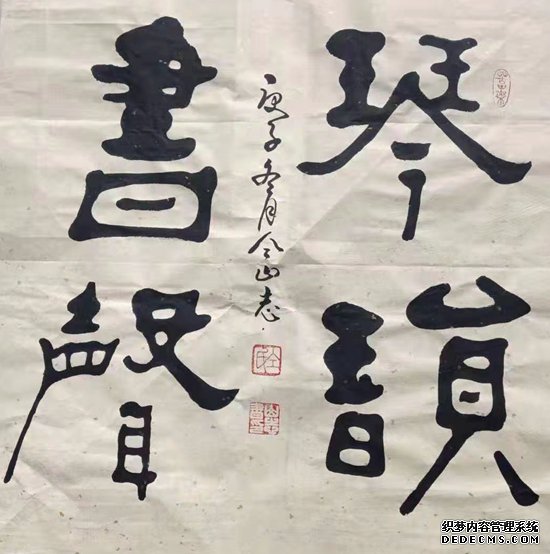 琴韻
書聲
庚子冬月仝山志
织梦内容管理系统
DEDECMS.COM